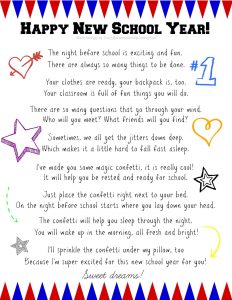 HAPPY NEW SCHOOL YEAR!
The night before school is exciting and fun.
There are always so many things to be done.
#1
Your clothes are ready, your backpack is, too.
Your classroom is full of fun things you will do.
There are so many questions that go through your mind.
Who will you meet? What friends will you find?
Sometimes, we all get the jitters down deep,
Which makes it a little hard to fall fast asleep.
I've made you some magic confetti, it is really cool!
It will help you be rested and ready for school.
Just place the confetti right next to your bed.
On the night before school starts where you lay down your head.
The confetti will help you sleep through the night.
You will wake up in the morning, all fresh and bright!
I'll sprinkle the confetti under my pillow, too
Because I'm super excited for this new school year for you!
Sweet dreams!